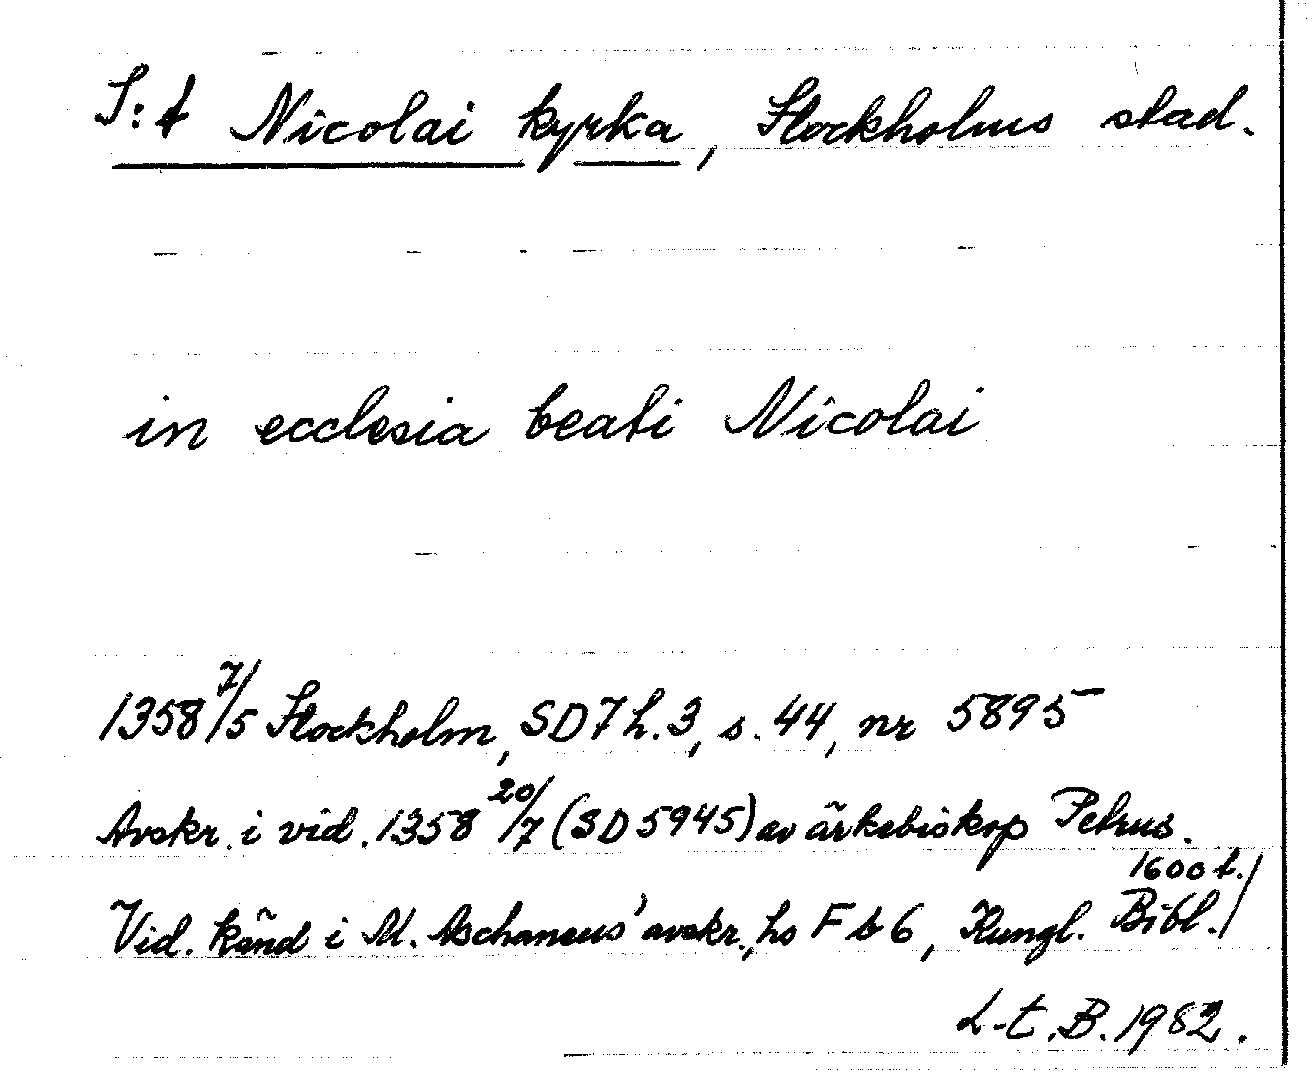 S:t Nicolai kyrka, Stockholms stad.
in ecclesia beati Nicolai
1358 7/5 Stockholm, SD 7 h. 3, s. 44, nr 5895
Avskr. i vid. 1358 20/7 (SD 5945) av ärkebiskop Petrus.
1600 t./
Vid. känd i M. Aschaneus' avskr., hs F b 6, Kungl. Bibl./
L-t. B. 1982.